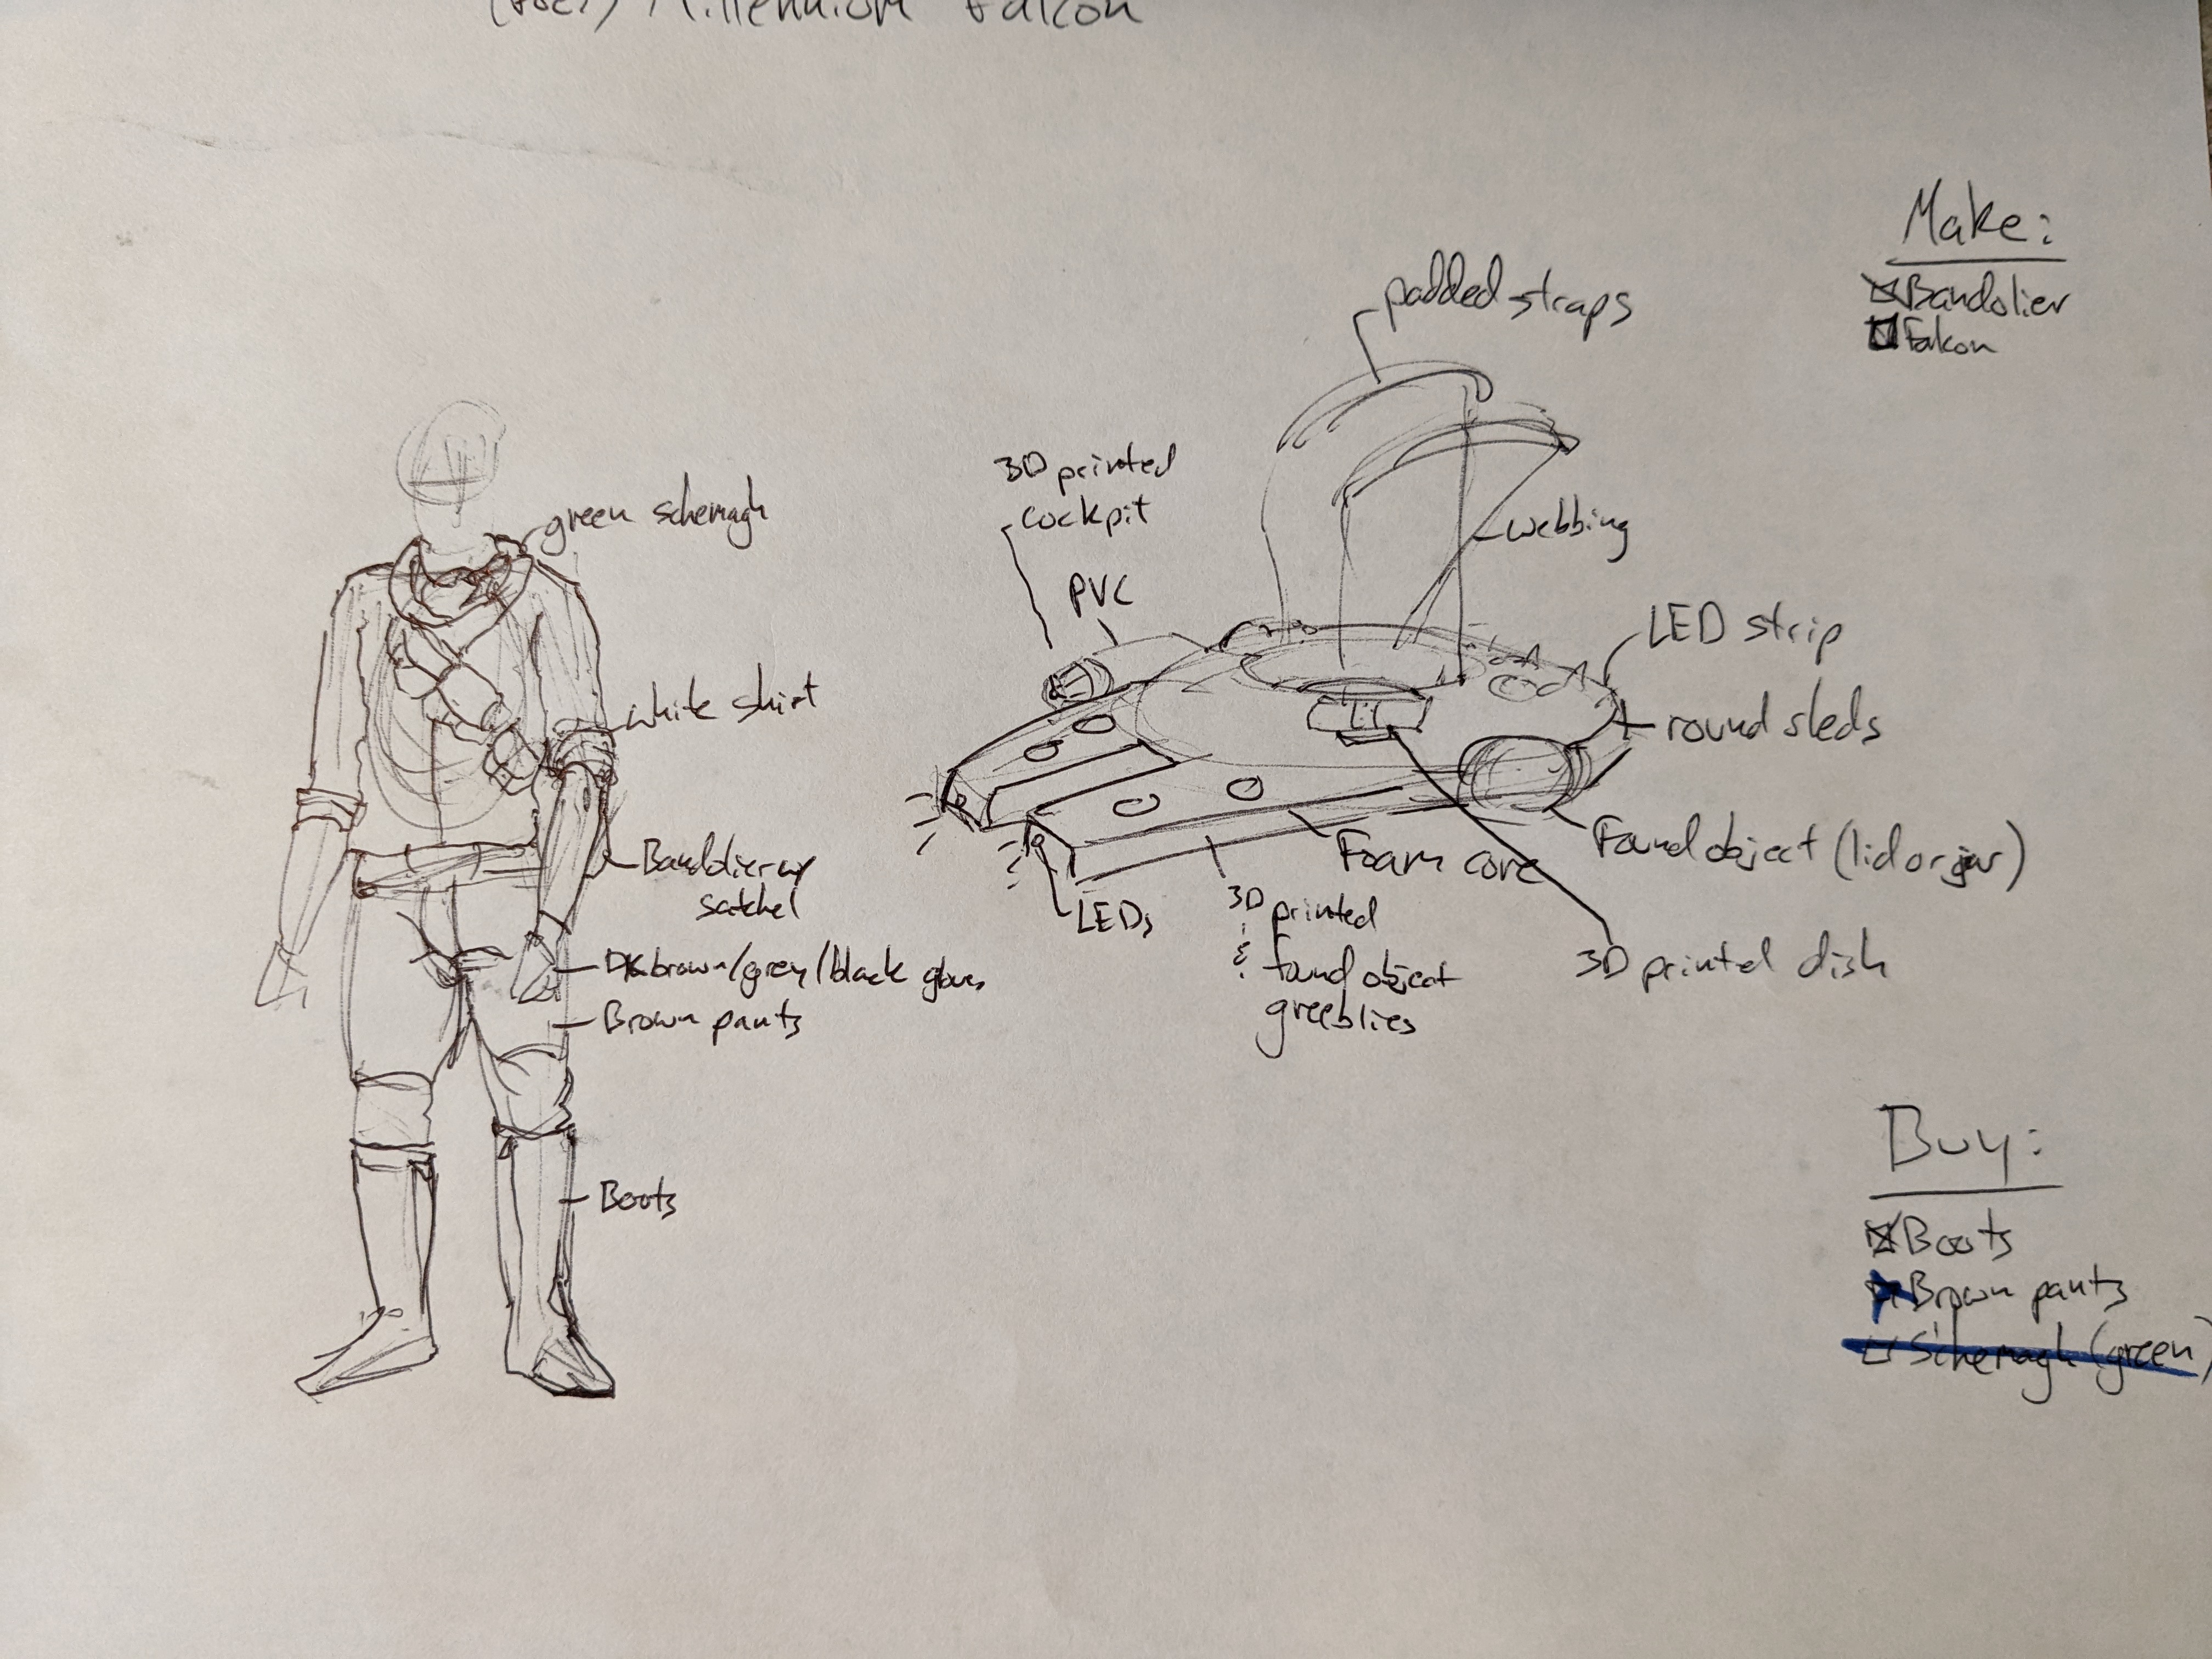 Millennium Falcon
Make:
Bandolier
Falcon
padded straps
3D printed
cockpit
PVC
webbing
LED strip
round sleds
Found object (lid or jar)
Foam core
3D printed dish
LEDs
3D printed
& found object
greeblies
green schemagh
white shirt
Bandolier w/
satchel
Dk brown/grey/black gloves
Brown pants
Boots
Buy:
Boots
Brown pants
Schemagh (green)